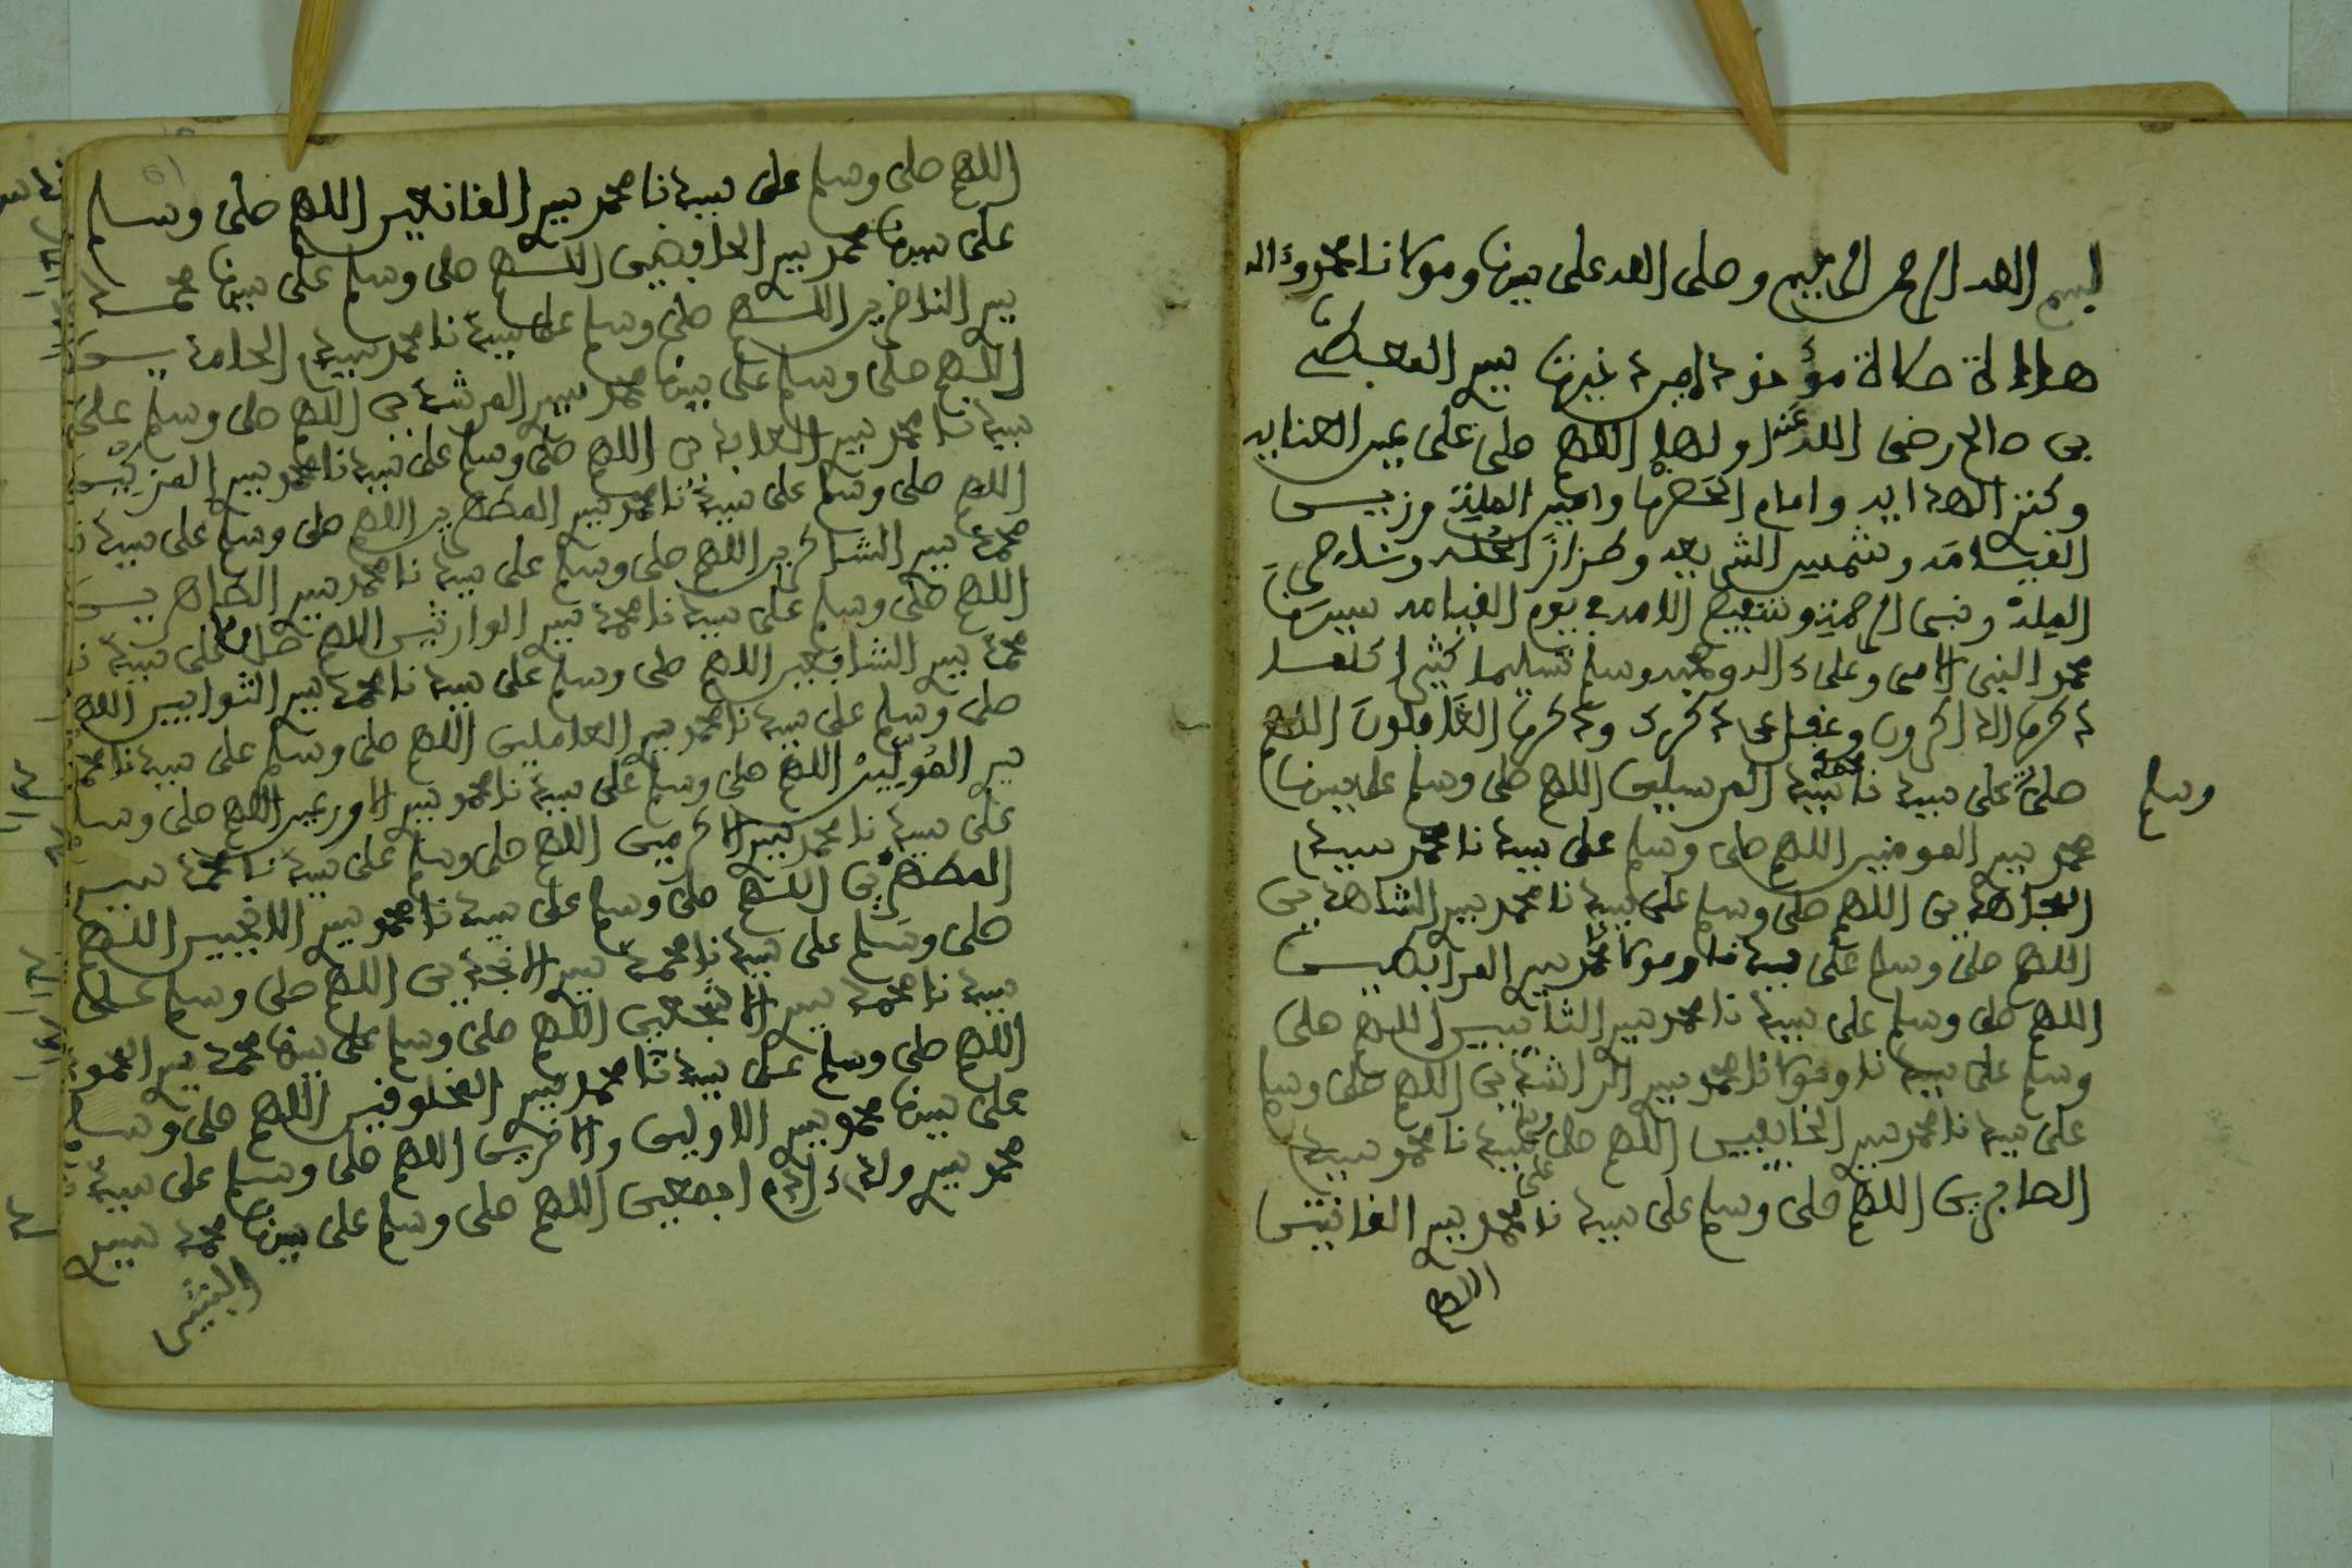 بسم الله الرحمن الرحيم وصلى الله على سيدنا ومولانا محمد وءاله
هذا صلاة سيد
بن صالح رضى الله عنه اولها اللهم صلى على عين العناية
وكنز الهداية وامام الحضرة وامين المملكة وزين
القيامة وشمس الشريعة وطراز الحلة
الملة ونبى الرحمة وشفيع الامة يوم القيامة سيدنا
محمد النبى الامى وعلى ءاله وصحبه وسلم تسليما كثيرا كلما
ذكرك الذاكرون وغفل عن ذكرك وذكره الغافلون اللهم
صلى وسلم على سيدنا محمد سيد المرسلين اللهم صلى وسلم على سيدنا
محمد سيد المومنين اللهم صلى وسلم على سيدنا محمد سيد
المجاهدين اللهم صلى وسلم على سيدنا محمد سيد الشاهدين
اللهم صلى وسلم على سيدنا ومولانا محمد سيد المرابطين
اللهم صلى وسلم على سيدنا محمد سيد التائبين اللهم صلى
وسلم على سيدنا ومولانا محمد سيد الراشدين اللهم صلى وسلم
على سيدنا محمد سيد الخائفين اللهم صلى وسلم على سيدنا محمد سيد
الصابرين اللهم صلى وسلم على سيدنا محمد سيد القانتين
اللهم
اللهم صلى وسلم على سيدنا محمد سيد القانعين اللهم صلى وسلم
على سيدنا محمد سيد الحافظين اللهم صلى وسلم على سيدنا محمد
سيد الناصرين اللهم صلى وسلم على سيدنا محمد سيد الحامدين
اللهم صلى وسلم على سيدنا محمد سيد المرشدين اللهم صلى وسلم على
سيدنا محمد سيد العابدين اللهم صلى وسلم على سيدنا محمد سيد
اللهم صلى وسلم على سيدنا محمد سيد المطهرين اللهم صلى وسلم على سيدنا
محمد سيد الشاكرين اللهم صلى وسلم على سيدنا محمد سيد الطاهرين
اللهم صلى وسلم على سيدنا محمد سيد الوارثين اللهم صل وسلم على سيدنا
محمد سيد الشافعين اللهم صلى وسلم على سيدنا محمد سيد التوابين اللهم
صلى وسلم على سيدنا محمد سيد العاملين اللهم صلى وسلم على سيدنا محمد
سيد اللهم صلى وسلم على سيدنا محمد سيد الاورعين اللهم صلى وسلم
على سيدنا محمد سيد الاكرمين اللهم صلى وسلم على سيدنا محمد سيد
المطهرين اللهم صلى وسلم على سيدنا محمد سيد الانجبين اللهم
صلى وسلم على سيدنا محمد سيد الانجدين اللهم صلى وسلم على
سيدنا محمد سيد الاشجعين اللهم صلى وسلم على سيدنا محمد سيد
اللهم صلى وسلم على سيدنا محمد سيد المخلوقين اللهم صلى وسلم
على سيدنا محمد سيد الاولين والاخرين اللهم صلى وسلم على سيدنا
محمد سيد ولد ءادم اجمعين اللهم صلى وسلم على سيدنا محمد سيد